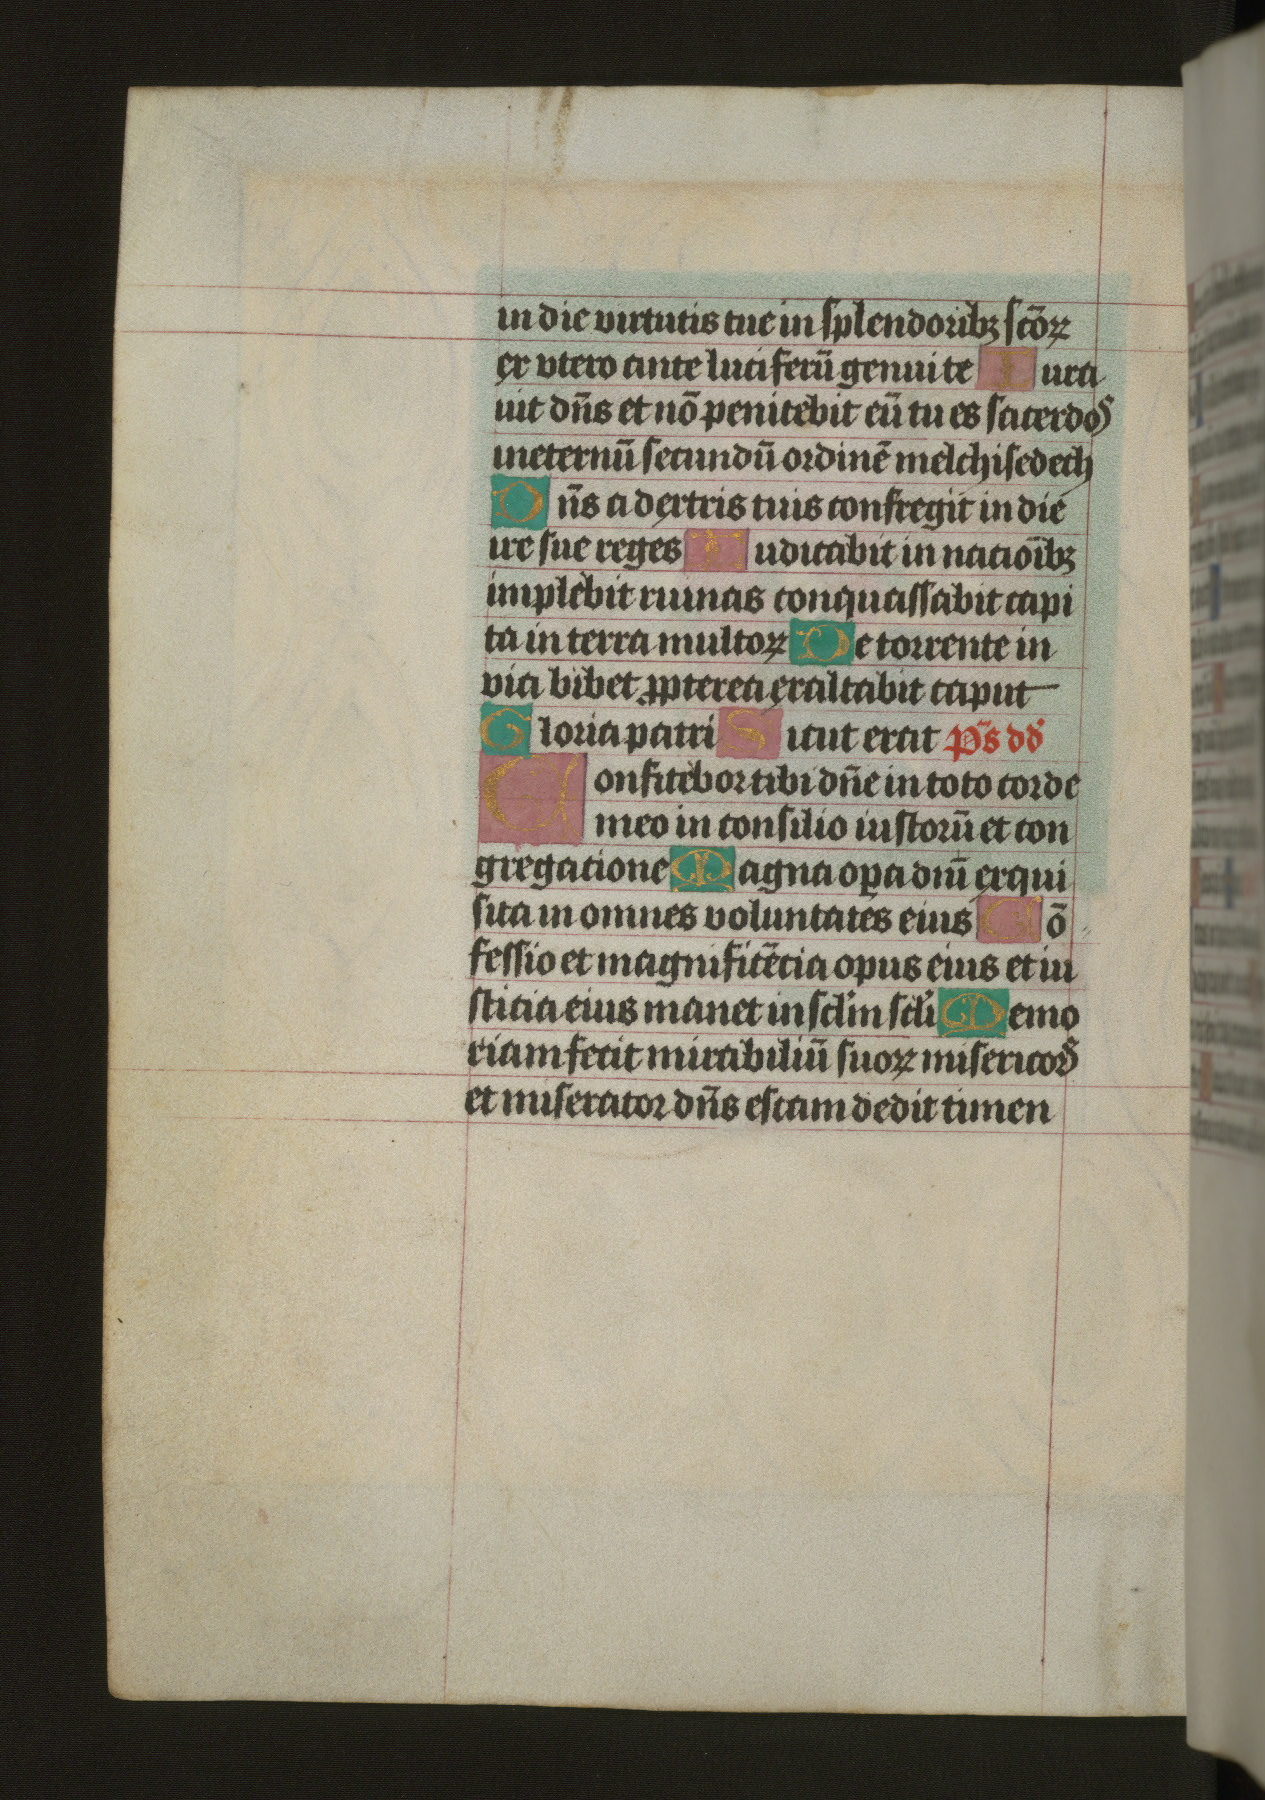 in die virtutis tue in splendoribꝫ sc̄oꝝ
ex vtero ante luciferū genui te Iura
uit dn̄s et nō penitebit eū tu es sacerdos
ineternū secundū ordinē melchisedech
Dn̄s a dextris tuis confregit in die
ire sue reges Iudicabit in nacioībꝫ
implebit ruinas conquassabit capi
ta in terra multoꝝ De torrente in
via bibet ꝓpterea exaltabit caput
Gloria patri Sicut erat p̄s dd
Confitebor tibi dn̄e in toto corde
meo in consilio iustorū et con
gregatione Magna oꝑa dm̄ exqui
sita in omnes voluntates eius Cō
fessio et magnificēcia opus eius et iu
sticia eius manet in scl̄m scl̄i Memo
riam fecit mirabiliū suoꝝ misericors
et miserator dn̄s escam dedit timen